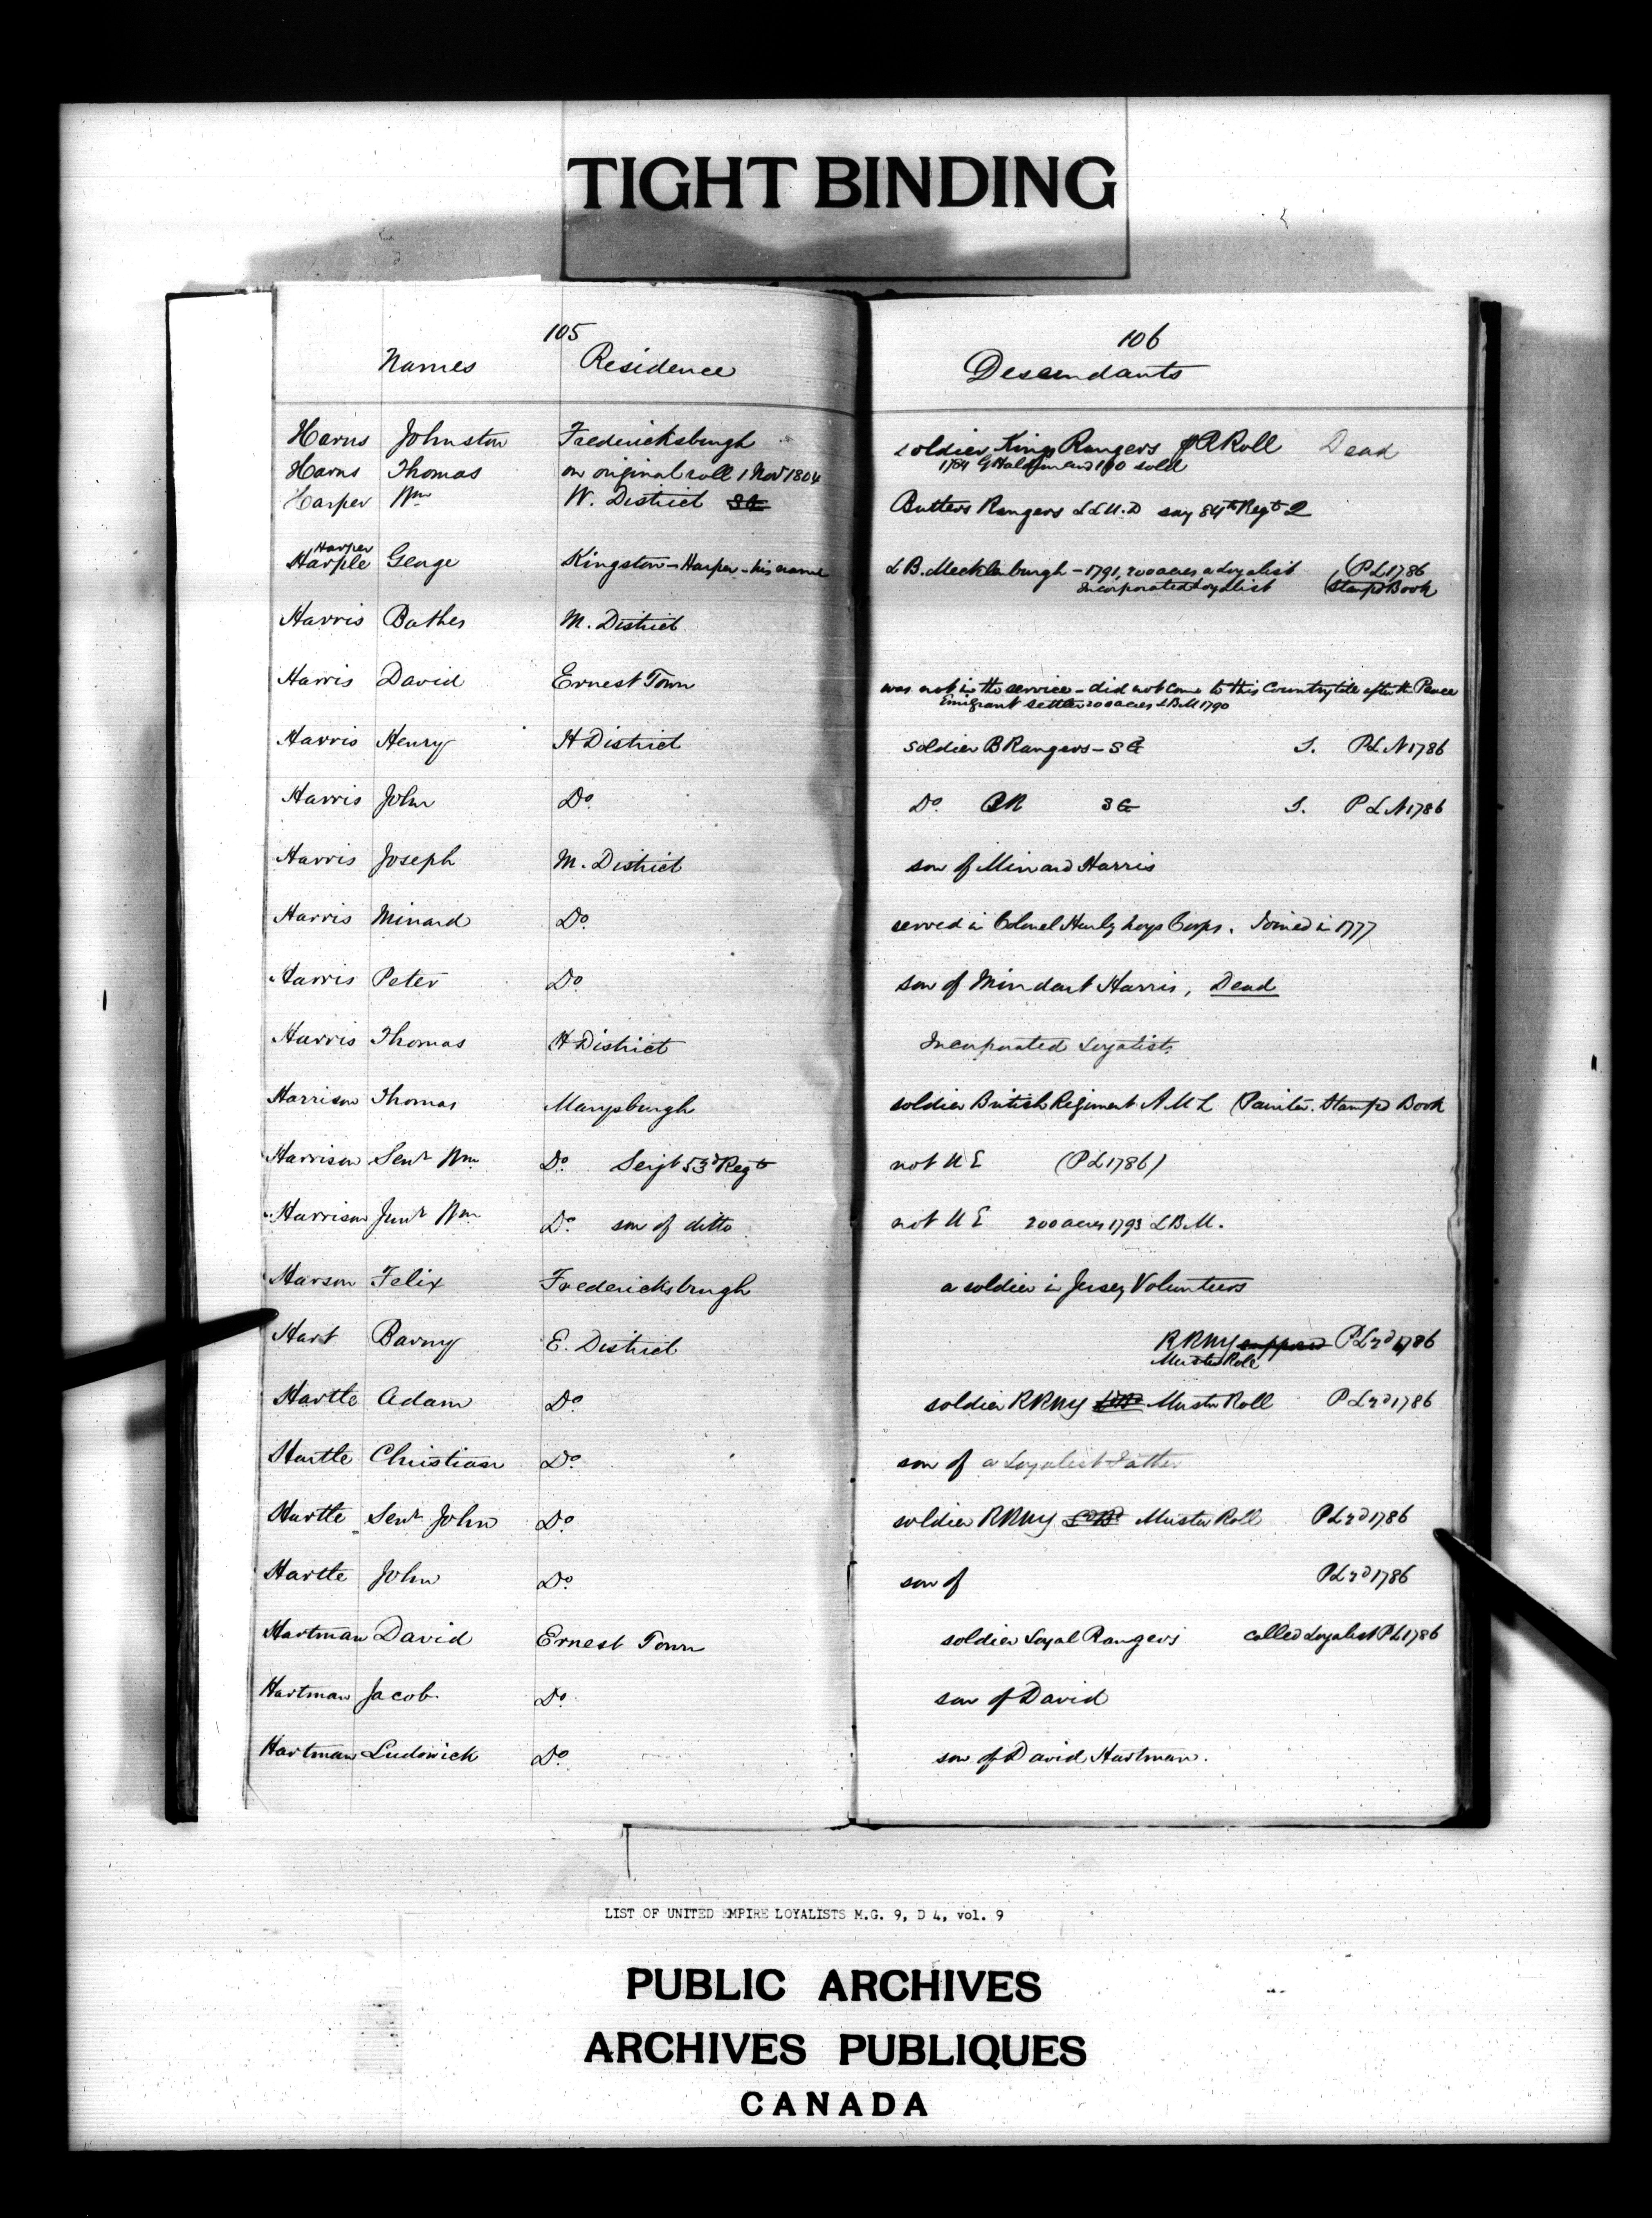 TIGHT BINDING
105
Names Residence
106
Descendants
Harns Johnston Fredericksburgh soldier Kings Rangers Roll Dead
1784 G Haldimand 100 sold
Harns Thomas on original roll 1 Nov 1804
Harper Wm W. District Butlers Rangers L L U. D say 84th Regt 2
Harper
Harple George Kingston - Harper - his name L B. Mecklenburgh - 1791, 200 acres a Loyalist (P L 1786
Incorporated Loyalist (Stampd Book
Harris Bather M. District
Harris David Ernest Town was not in the service - did not come to this Country till after the Peace
Emigrant settler 200 acres L B M 1790
Harris Henry H District soldier B Rangers - S G S. P L N 1786
Harris John Do. Do. B R S G S. P L N 1786
Harris Joseph M. District son of Minard Harris
Harris Minard Do. served in Colonel Corps. Joined in 1777
Harris Peter Do son of Mindart Harris, Dead
Harris Thomas H District Incorporated Loyalist
Harrison Thomas Marysburgh soldier British Regiment A M L (Painter. Stampd Book
Harrison Senr Wm Do. Serjt 53d Regt not U E (P L 1786)
Harrison Junr Wm Do. son of ditto not U E 200 acres 1793 L B M.
Harson Felix Fredericksburgh a soldier in Jersey Volunteers
Hart Barny E. District R R N Y P L 2d 1786
Muster Roll
Hartle Adam Do soldier R R N Y Muster Roll P L 2d 1786
Hartle Christian Do. son of a Loyalist Father
Hartle Senr John Do. soldier R R N Y Muster Roll P L 2d 1786
Hartle John Do. son of P L 2d 1786
Hartman David Ernest Town soldier Loyal Rangers called Loyalist P L 1786
Hartman Jacob Do. son of David
Hartman Ludowick Do. son of David Hartman.
LIST OF UNITED EMPIRE LOYALISTS M.G. 9, D 4, vol. 9
PUBLIC ARCHIVES
ARCHIVES PUBLIQUES
CANADA